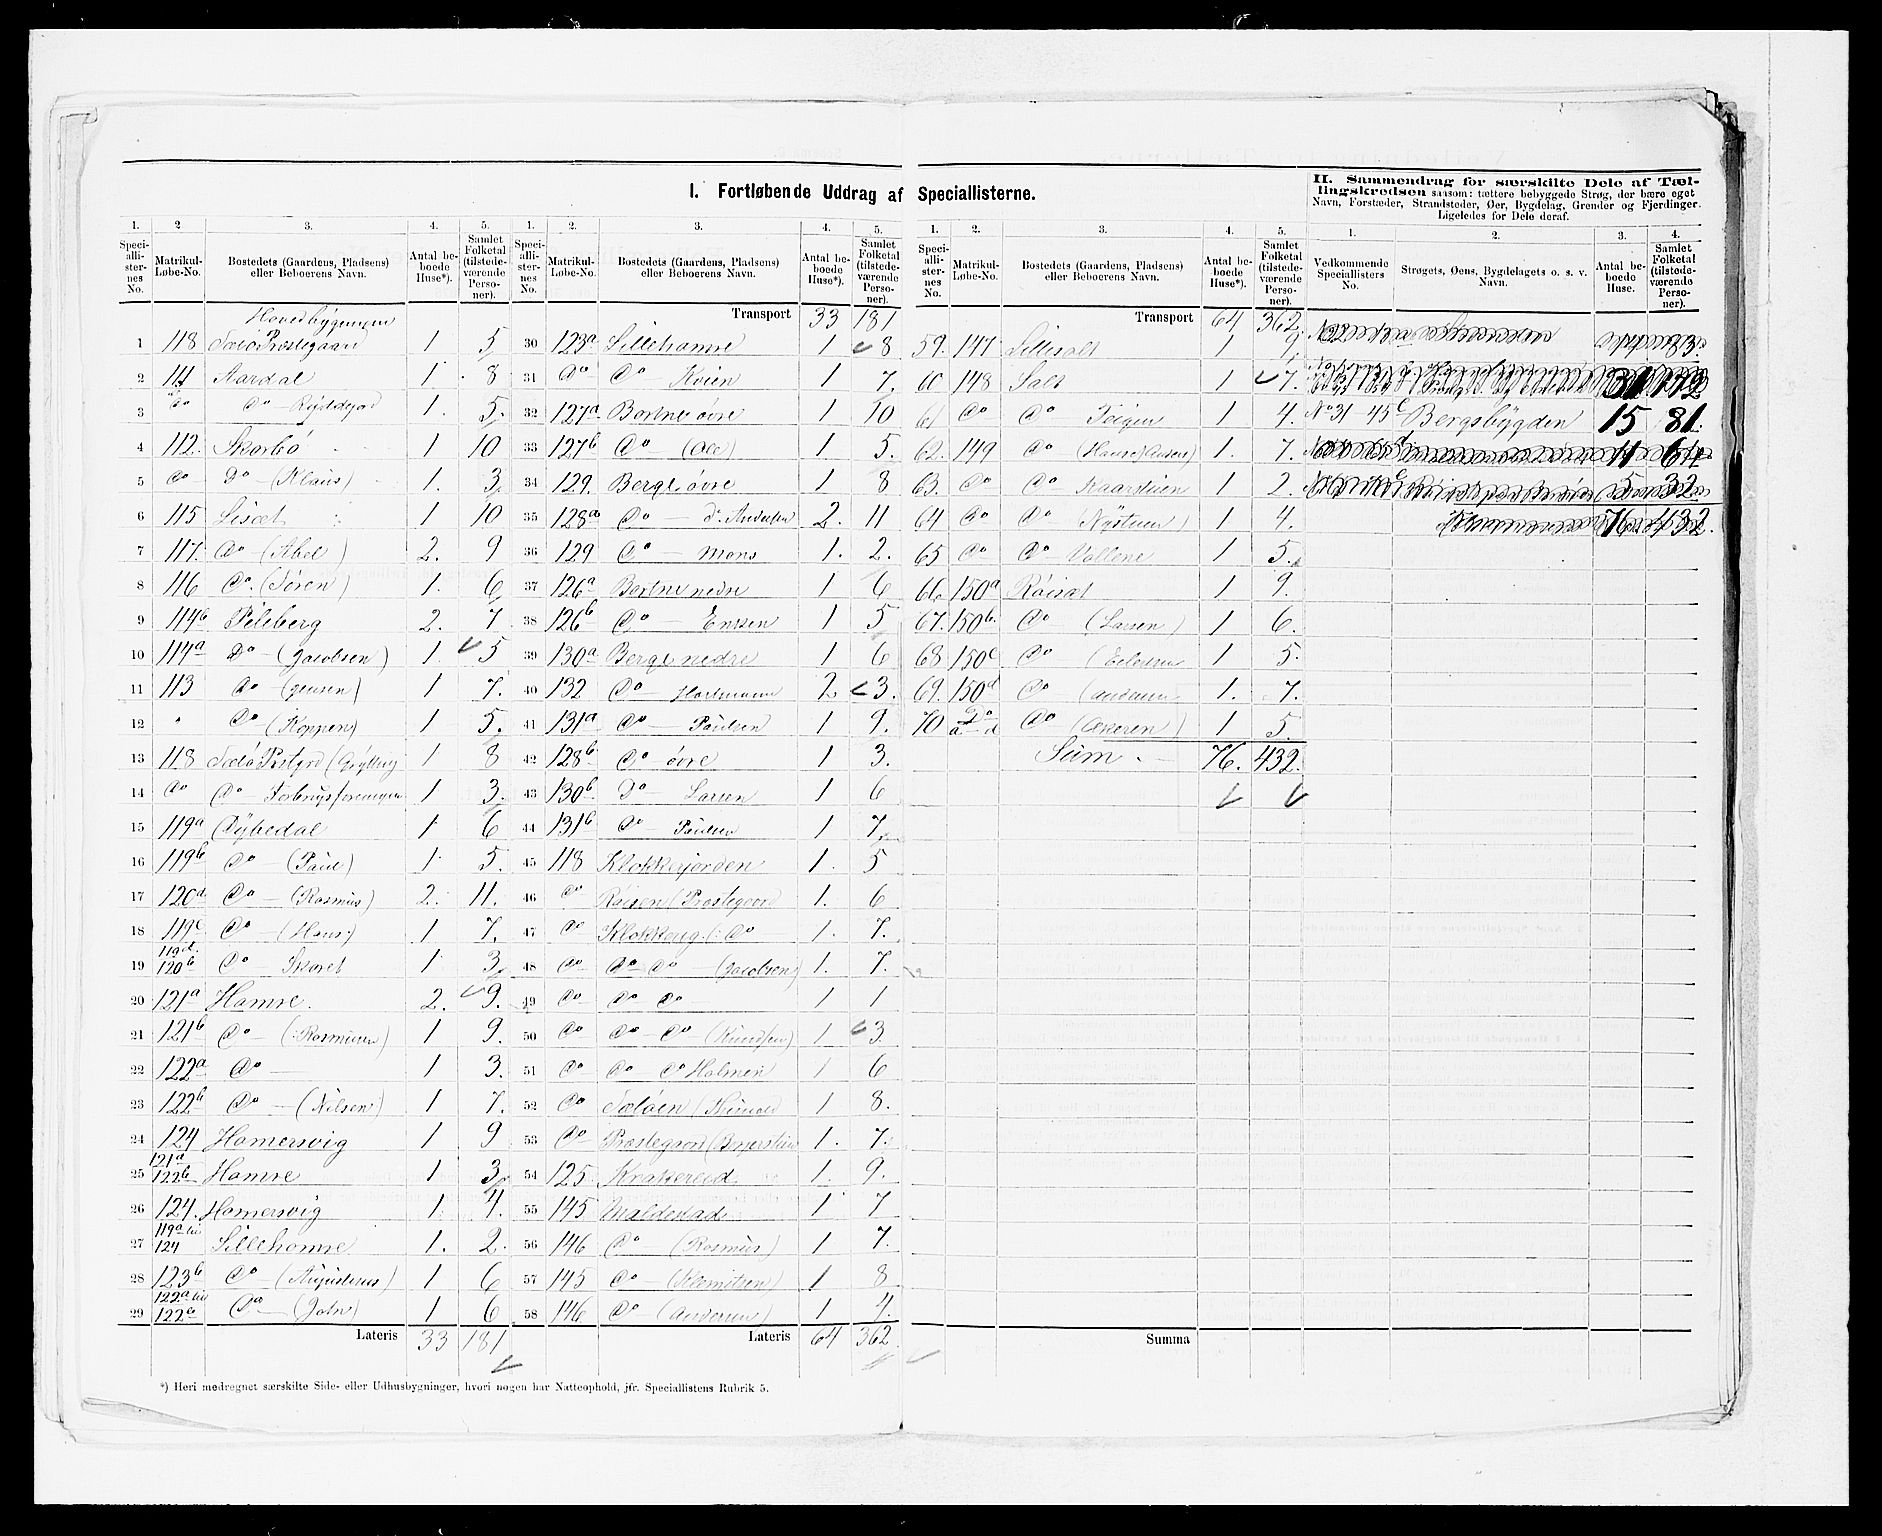 I. Fortløbende Uddrag af Speciallisterne.
II. Sammendrag for særskilte Dele af Tællingskredsen saasom: tættere bebyggede Strøg, der bære eget
Navn, Forstæder, Strandsteder, Øer, Bygdelag, Grender og Fjerdinger.
Ligeledes for Dele deraf.
1. 2 3. 4. 5.
Speciallisternes No. Matrikul-Løbe-No. Bostedets (Gaardens, Pladsens) eller Beboerens Navn. Antal beboede Huse*). Samlet Folketal (tilstedeværende Personer).
Hovedbygningen
1 118 Selø Præstegaard 1 5
2 111 Aardal 1 8
3 Do Do - 1. 5.
4 112. Skorbø 1 10
5 Do Do - (Klaus) 1. 3
6 115 Lisæt 1 10
7 117. Do - (Abel) 2. 9
8 116 Do. (Søren) 1. 6
9 114b Pileberg 2. 7
10 114a Do - (Jacobsen) 1. 5
11 113 Do - (Jensen) 1 7.
12 " Do (Koppen) 1 5.
13 118 1 8
14 Do Do - Forbrugsforeningen 1 3.
15 119a Dybedal 1 6
16 119b Do - (Paul) 1. 5.
17 120a Do - (Rasmus) 2. 11.
18 119c Do - (Hans) 1 7.
19 119d. 120b Do Skaret 1 3
20 121a Hamre. 2. 9.
21 121b Do - (Rasmusen) 1 9.
22 122a Do 1 3.
23 122b Do - (Nilsen) 1 7.
24 124 Hamersvig 1 9
25 121a 122b Hamre 1 3
26 124. Hamersvig 1 4.
27 119a til 124 Lillehamre 1. 2.
28 123b Do - (Augustinus) 1 6
29 122a til 122c Do - (John) 1 6
Lateris 33 181
*) Heri medregnet særskilte Side- eller Udhusbygninger, hvori nogen har Natteophold, jfr. Speciallistens Rubrik 5.
1. 2. 3. 4. 5.
Speciallisternes No. Matrikul-Løbe-No. Bostedets (Gaardens, Pladsens) eller Beboerens Navn. Antal beboede Huse*). Samlet Folketal (tilstedeværende Personer).
Transport 33 181
30 123a Lillehamre 1 8
31 Do Do - Kvien 1 7.
32 127a Bortne øvre 1 10
33 127b Do (Ole) 1. 5.
34 129. Berge øvre 1 8
35 128a Do - Do Andersen 2. 11
36 129 Do - Mons 1. 2.
37 126a Bortne nedre 1 6
38 126b Do - Ensen 1 5
39 130a Berge nedre 1 6
40 132 Do - Hartmann 2 3.
41 131a Do - Paulsen 1 9.
42 128b Do øvre 1 3.
43 130b Do - Larsen 1 6
44 131b Do - Paulsen 1 7
45 118 Klokkerjorden 1. 5
46 Do (Præstegaard 1. 6
47 Do Do 1. 7.
48 Do Do Do - (Jacobsen) 1. 7.
49 Do Do Do 1 1
50 Do Do - Do (Knudsen) 1 3
51 Do Do - Do Holmen 1 6
52 Do Seløen 1 8.
53 Do Præstegaard 1. 7.
54 125. Krakereid 1. 9.
55 145 Maldestad 1 7
56 146 Do - (Rasmus) 1 7.
57 145 Do - (Klemitsen) 1 8
58 146 Do - (Andersen) 1 4.
Lateris 64 362.
1. 2. 3. 4. 5.
Speciallisternes No. Matrikul-Løbe-No. Bostedets (Gaardens, Pladsens) eller Beboerens Navn. Antal beboede Huse*). Samlet Folketal (tilstedeværende Personer).
Transport 64 362
59. 147 Lillesalt 1 9
60 148 Salt 1 7.
61 Do Do Teigen 1 4.
62. 149 Do 1. 7.
63. Do Do Kaarstuen 1 2.
64 Do Do 1 4.
65 Do Do - Vallene 1 5.
66 150a Røisæt 1 9.
67. 150b. Do - (Larsen) 1 6.
68 150c Do 1 5.
69. 150d Do 1. 7.
70 Do a-d Do (Akeren) 1 5.
Sum. 76. 432.
Summa
1. 2. 3. 4.
Vedkommende Speciallisters No. Strøgets, Øens, Bygdelagets o. s. v. Navn. Antal beboede Huse. Samlet Folketal (tilstedeværende Personer).
83.
31 172
No 31 45 Bergsbygden 15 81.
11 64
5 32
76 432.